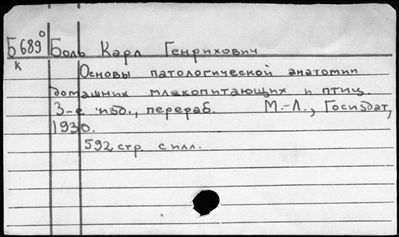 Б689° Боль Карл Генрихович
к
Основы патологической анатомии
домашних млекопитающих и птиц.
3-е изд., перераб. М.-Л., Госиздат,
1930.
592 стр. с илл.